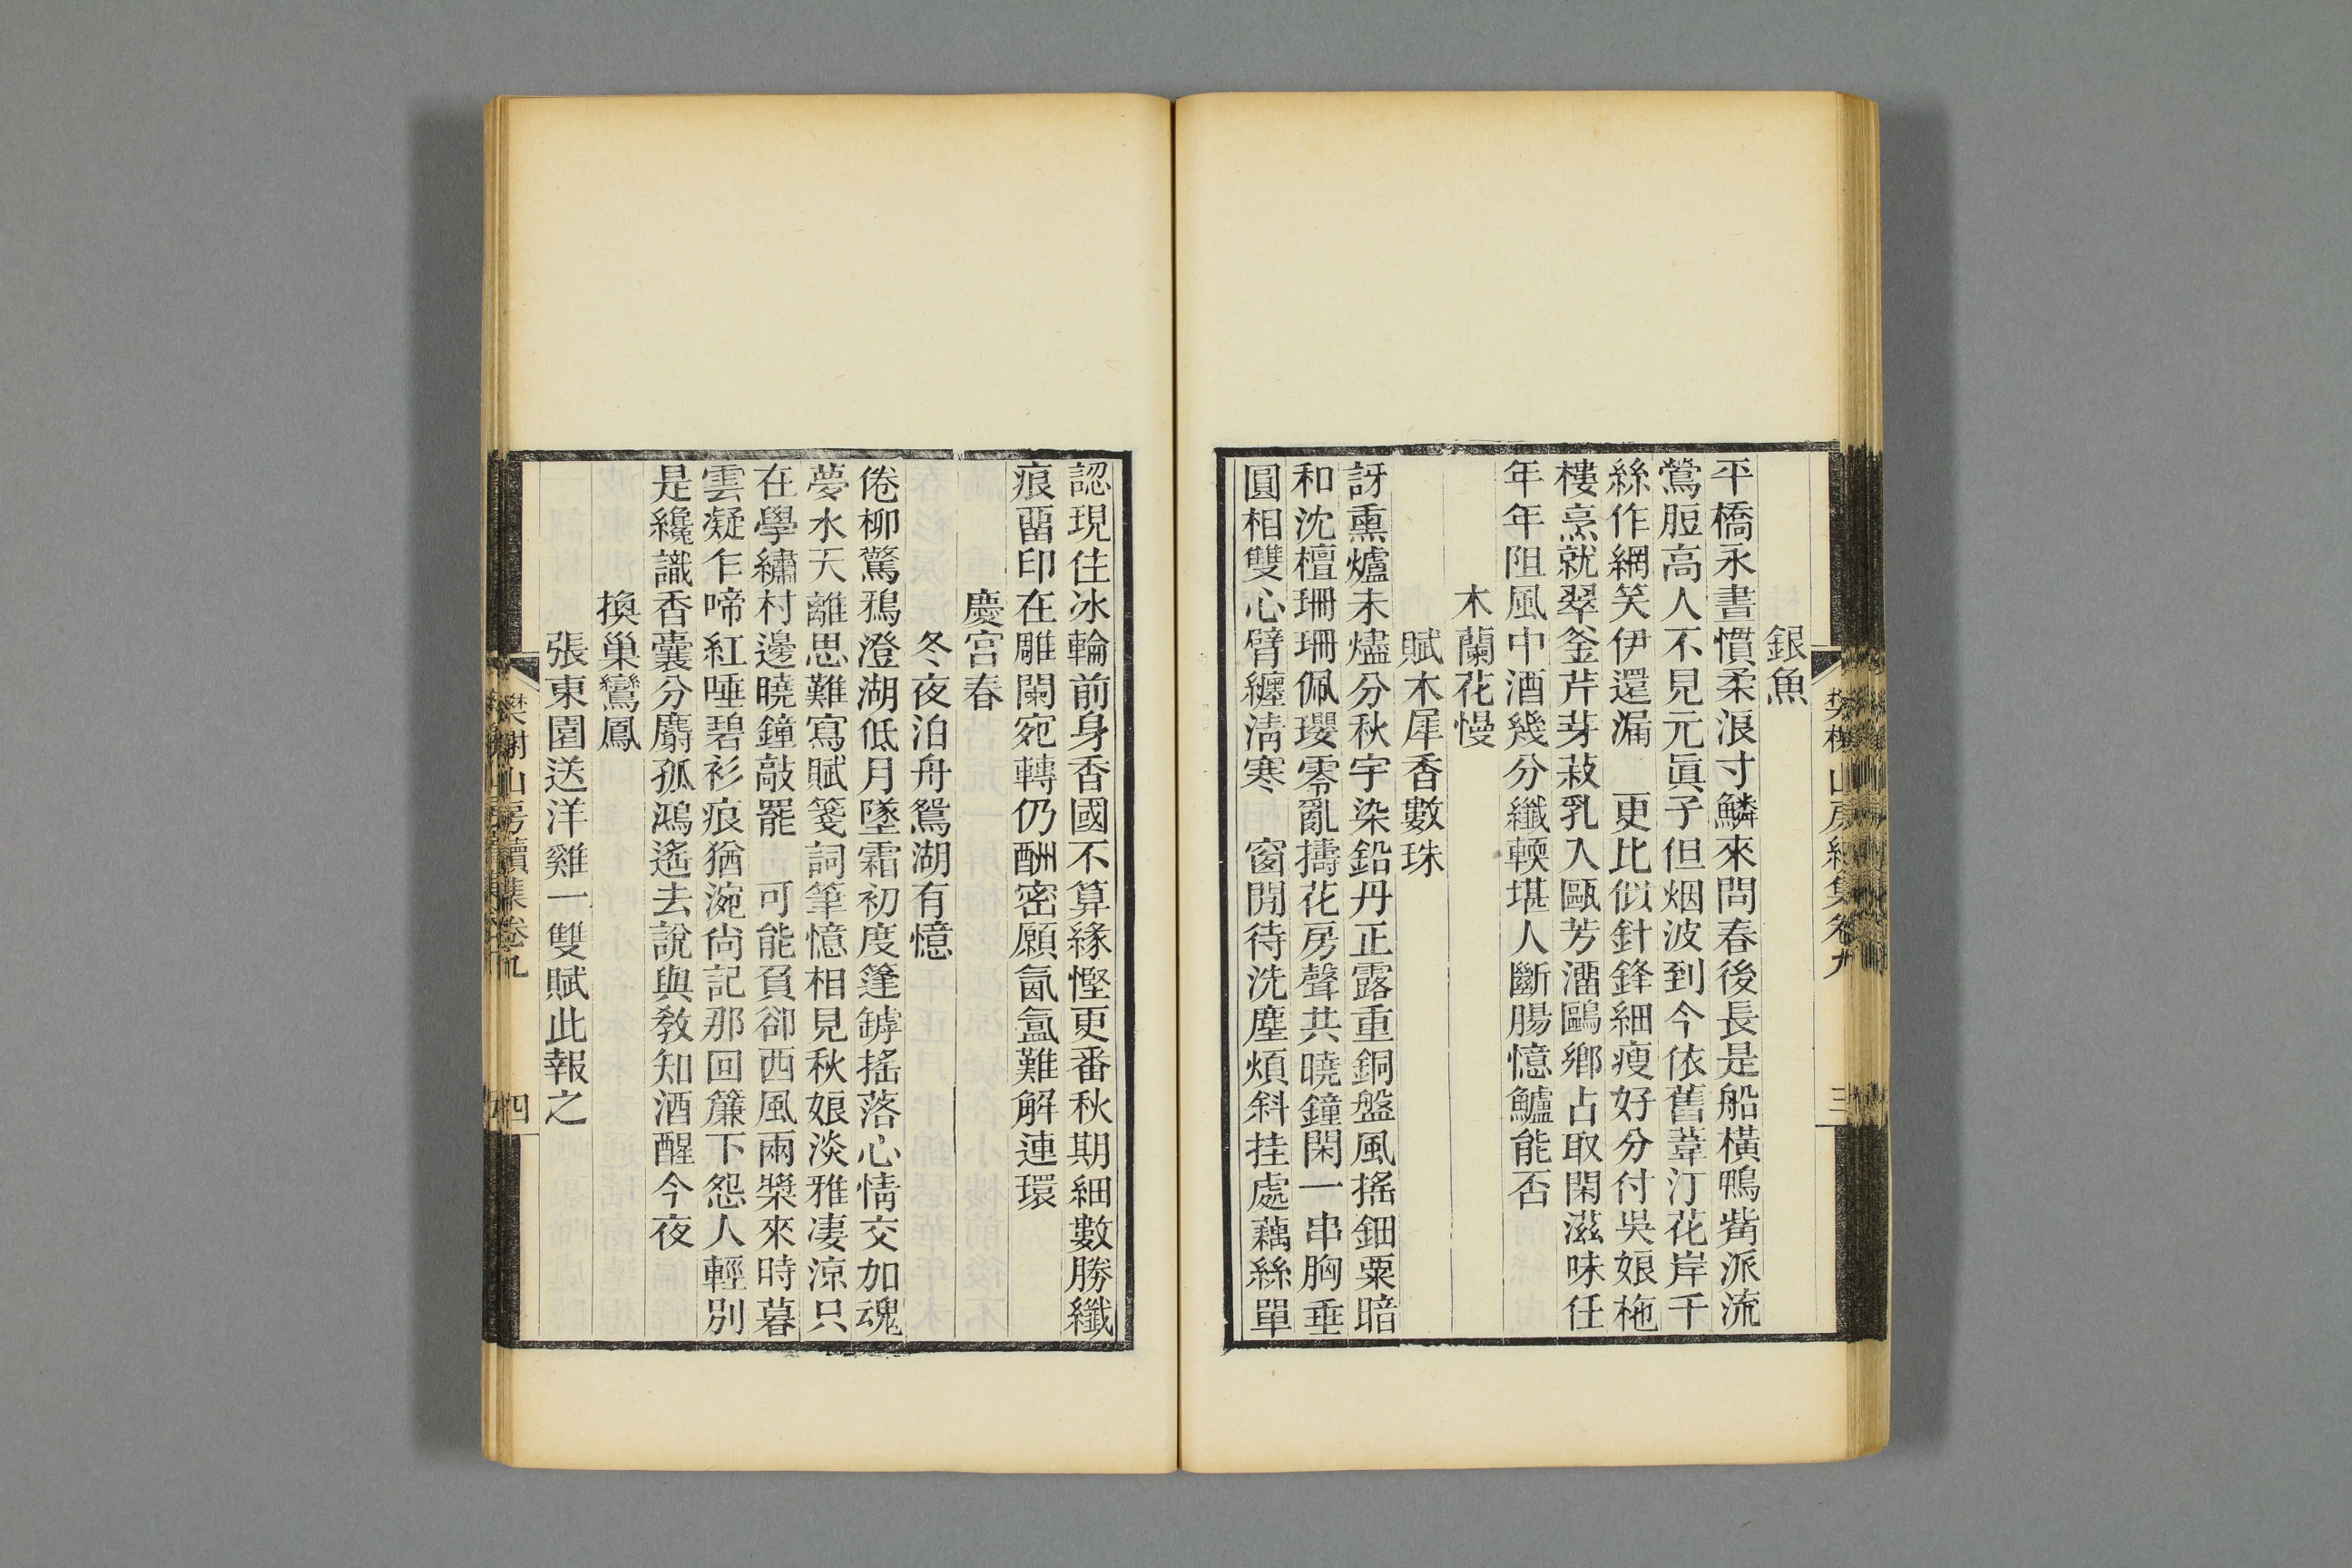 銀魚
平橋永晝慣柔浪寸鱗來問春後長是船橫鴨觜派流
鶯脰高人不見元眞子但烟波到今依舊葦汀花岸千
絲作網笑伊還漏　更比似針鋒細瘦好分付吳娘柂
樓烹就翠釜芹芽菽乳入甌芳溜鷗鄉占取閑滋味任
年年阻風中酒幾分纖輭堪人斷腸憶鱸能否
木蘭花慢
賦木犀香數珠
訝熏爐未燼分秋宇染鉛丹正露重銅盤風搖鈿粟暗
和沈檀珊珊佩瓔零亂擣花房聲共曉鐘閑一串胸垂
圓相雙心臂纏淸寒　窗閒待洗塵煩斜挂處藕絲單
認現住冰輪前身香國不算緣慳更番秋期細數勝纖
痕畱印在雕闌宛轉仍酬密願氤氳難解連環
慶宮春
冬夜泊舟鴛湖有憶
倦柳驚鴉澄湖低月墜霜初度篷罅搖落心情交加魂
夢水天離思難寫賦箋詞筆憶相見秋娘淡雅凄涼只
在學繡村邊曉鐘敲罷　可能負卻西風兩槳來時暮
雲凝乍啼紅唾碧衫痕猶涴尙記那回簾下怨人輕別
是纔識香囊分麝孤鴻遙去說與敎知酒醒今夜
換巢鸞鳳
張東圃送洋雞一雙賦此報之
樊榭山房續集卷九
四